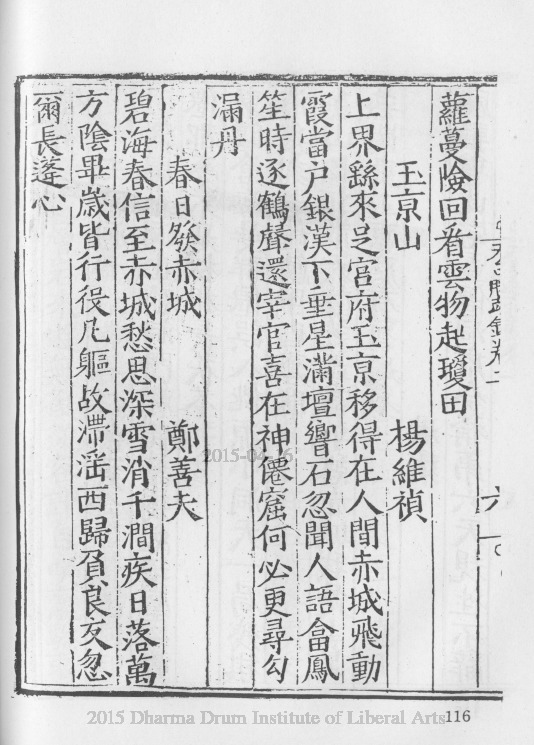 蘿蔓險回看雲物起瓊田
玉京山 楊維禎
上界繇來足官府玉京移得在人間赤城飛動
霞當户銀漢下垂星滿壇響石忽聞人語畣鳳
笙時逐鶴聲還宰官喜在神僊窟何必更尋勾
漏丹
春日發赤城 鄭善夫
碧海春信至赤城愁思深雪消千澗疾日落萬
方陰畢歲皆行役凢軀故滯滛西歸負良友忽
爾長蓬心
2015-04-16
2015 Dharma Drum Institute of Liberal Arts
116